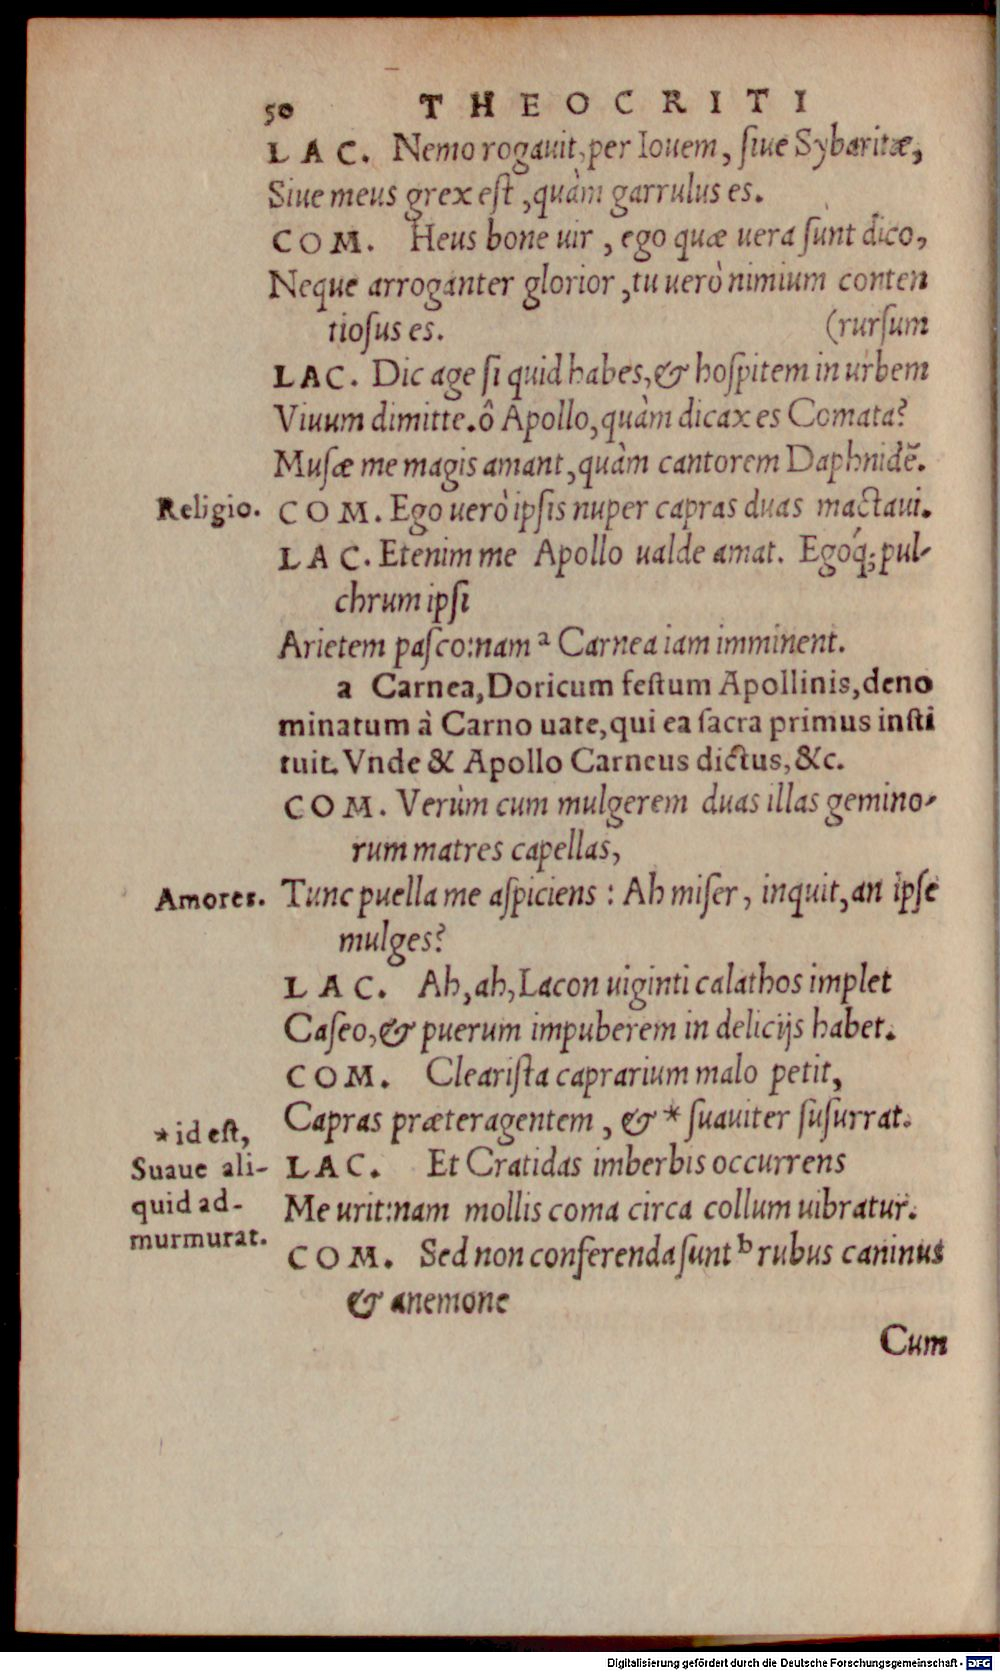 50 THEOCRITI
LAC. Nemo rogauit, per Iouem, ſiue Sybaritæ,
Siue meus grex eſt, quàm garrulus es.
COM. Heus bone uir, ego quæ uera ſunt dico,
Neque arroganter glorior, tu uerò nimium conten
tioſus es. (rurſum
LAC. Dic age ſi quid habes, & hoſpitem in urbem
Viuum dimitte. ô Apollo, quàm dicax es Comata?
Muſæ me magis amant, quàm cantorem Daphnidẽ.
Religio. COM. Ego uerò ipſis nuper capras duas mactaui.
LAC. Etenim me Apollo ualde amat. Egoq́; pul-
chrum ipſi
Arietem paſco: nam a Carnea iam imminent.
a Carnea, Doricum feſtum Apollinis, deno
minatum à Carno uate, qui ea ſacra primus inſti
tuit. Vnde & Apollo Carneus dictus, &c.
COM. Verùm cum mulgerem duas illas gemino-
rum matres capellas,
Amores. Tunc puella me aſpiciens: Ah miſer, inquit, an ipſe
mulges?
LAC. Ah, ah, Lacon uiginti calathos implet
Caſeo, & puerum impuberem in delicijs habet.
COM. Cleariſta caprarium malo petit,
Capras præteragentem, & * ſuauiter ſuſurrat.
* id eſt,
Suaue ali-
quid ad-
murmurat.
LAC. Et Cratidas imberbis occurrens
Me urit: nam mollis coma circa collum uibratur.
COM. Sed non conferenda ſunt b rubus caninus
& anemone
Cum
Digitalisierung gefördert durch die Deutsche Forschungsgemeinschaft - DFG